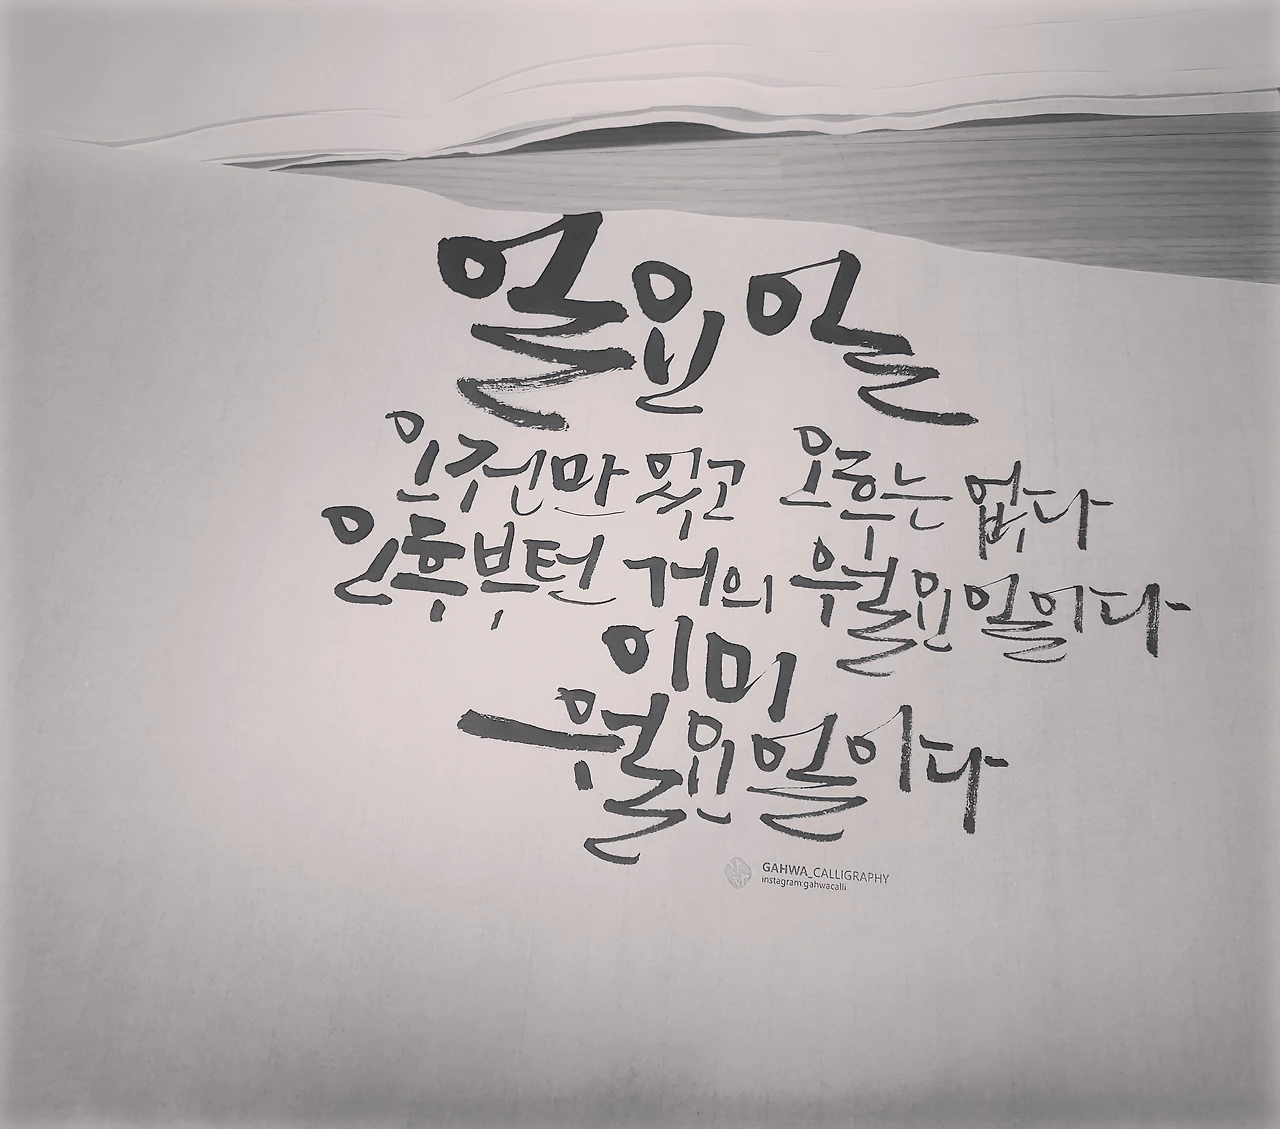 일요일
오전만 있고 오후는 없다
오후부턴 거의 월요일이다
이미
월요일이다
GAHWA_CALLIGRAPHY
instagram:gahwacalli